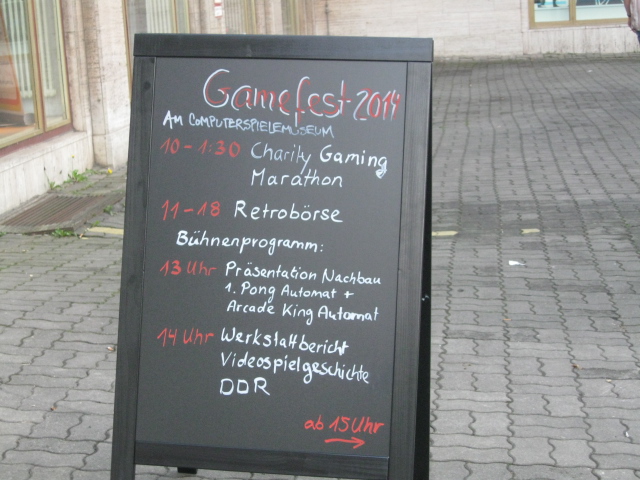 Gamefest 2014
AM COMPUTERSPIELEMUSEUM
10-1:30 Charity Gaming
Marathon
11-18 Retrobörse
Bühnenprogramm:
13 Uhr Präsentation Nachbau
1. Pong Automat +
Arcade King Automat
14 Uhr Werkstattbericht
Videospielgeschichte
DDR
ab 15 Uhr